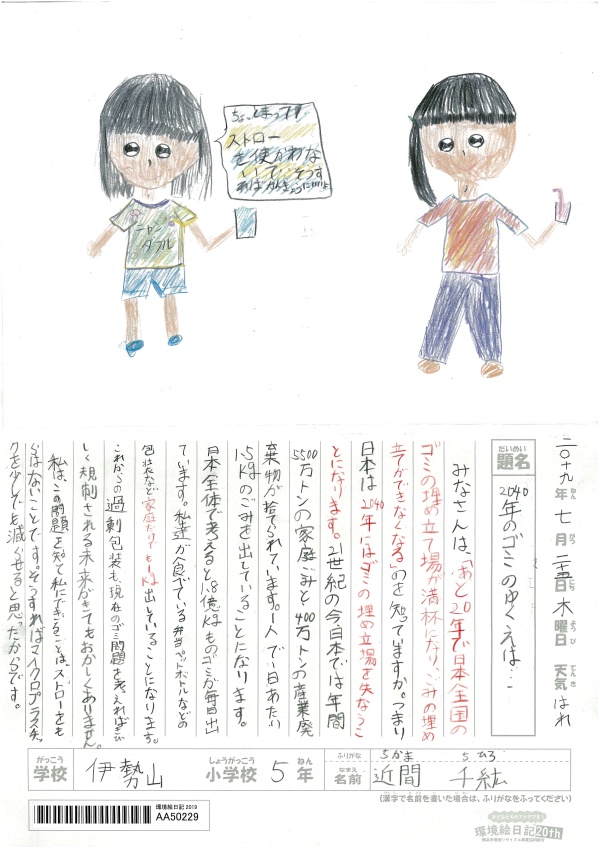 ちょっとまって!!
ストロー
を使わな
いで。そうす
ればかんきょうにいいよ
ニャン
ダフル
二〇十九年七月二十五日木曜日 天気はれ
ねん
がつ
にち
ようび
てんき
だいめい
題名
2040年のゴミのゆくえは…
みなさんは、「あと20年で日本全国の
ゴミの埋め立て場が満杯になり、ごみの埋め
立てができなくなる」のを知っていますか。つまり
日本は2040年にはゴミの埋め立場を失なうこ
とになります。21世紀の今、日本では年間
5500万トンの家庭ごみと400万トンの産業廃
棄物が捨てられています。一人で1日あたり
1.5kgのごみを出していることになります。
日本全体で考えると1.8億kgものゴミが毎日出
ています。私達が食べている弁当、ペットボトルなどの
包装など家庭だけでも一kg出していることになります。
これからの過剰包装も、現在のゴミ問題を考えればきび
しく規制される未来がきてもおかしくありません。
私は、この問題を知って私にできることは、ストローをも
らはないことです。そうすればマイクロプラスチッ
クを少しでも減らせると思ったからです。
がっこう
学校 伊勢山
しょうがっこう
小学校
5
ねん
年
ふりがな ちかま ちひろ
なまえ
名前 近間 千紘
(漢字で名前を書いた場合は、ふりがなをふってください)
環境絵日記2019
AA50229
環境絵日記20th